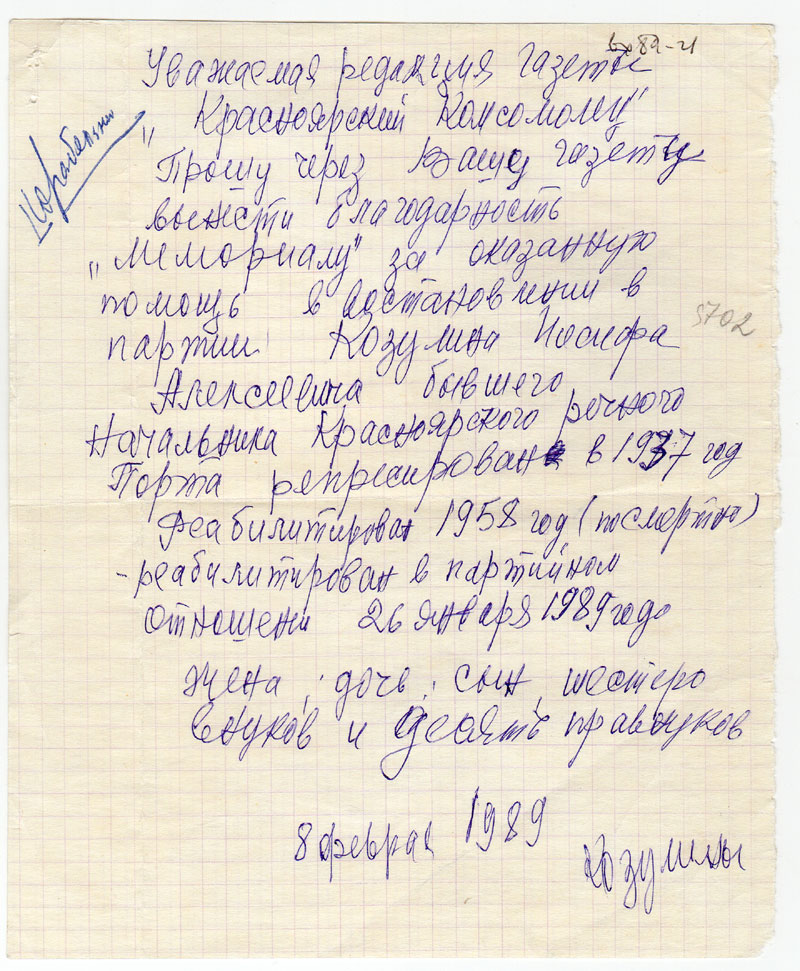 вх 89-21
Уважаемая редакция газеты
"Красноярский Комсомолец"
Прошу через Вашу газету
вынести благодарность
„Мемориалу" за оказанную
помощь в востановлении в
партии Козулина Иосифа
Алексеевича бывшего
Начальника Красноярского речного
Порта репресирован в 1937 год
Реабилитирован 1958 год (посмертно)
- реабилитирован в партийном
отношени 26 января 1989 года
жена, дочь, сын, шестеро
внуков и десять правнуков
8 феврал 1989
Козулины
5702